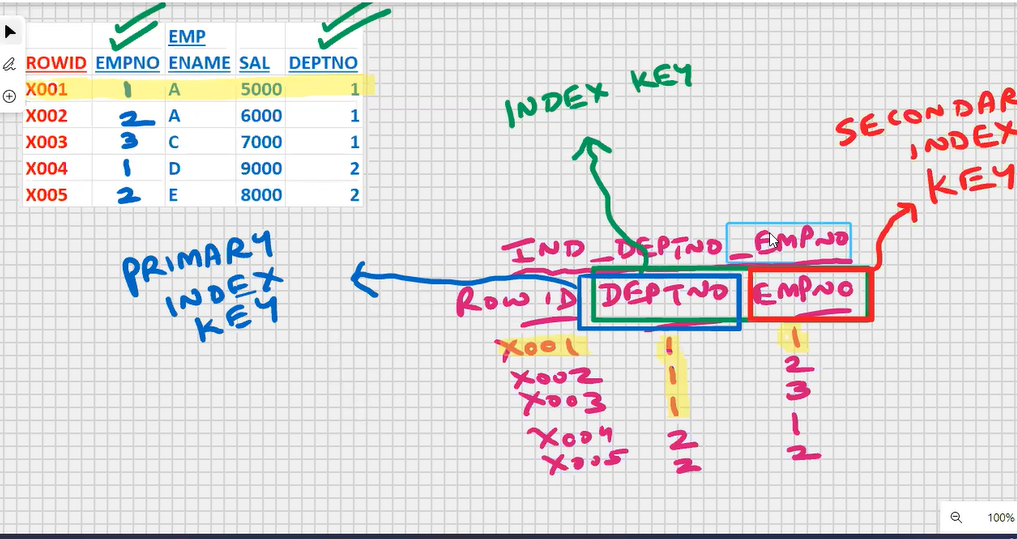 EMP
ROWID EMPNO ENAME SAL DEPTNO
X001 1 A 5000 1
X002 2 A 6000 1
X003 3 C 7000 1
X004 1 D 9000 2
X005 2 E 8000 2
INDEX KEY
SECONDAR
INDEX
KEY
PRIMARY
INDEX
KEY
IND_DEPTNO_EMPNO
ROWID DEPTNO EMPNO
X001 1 1
X002 1 2
X003 1 3
X004 2 1
X005 2 2
100%